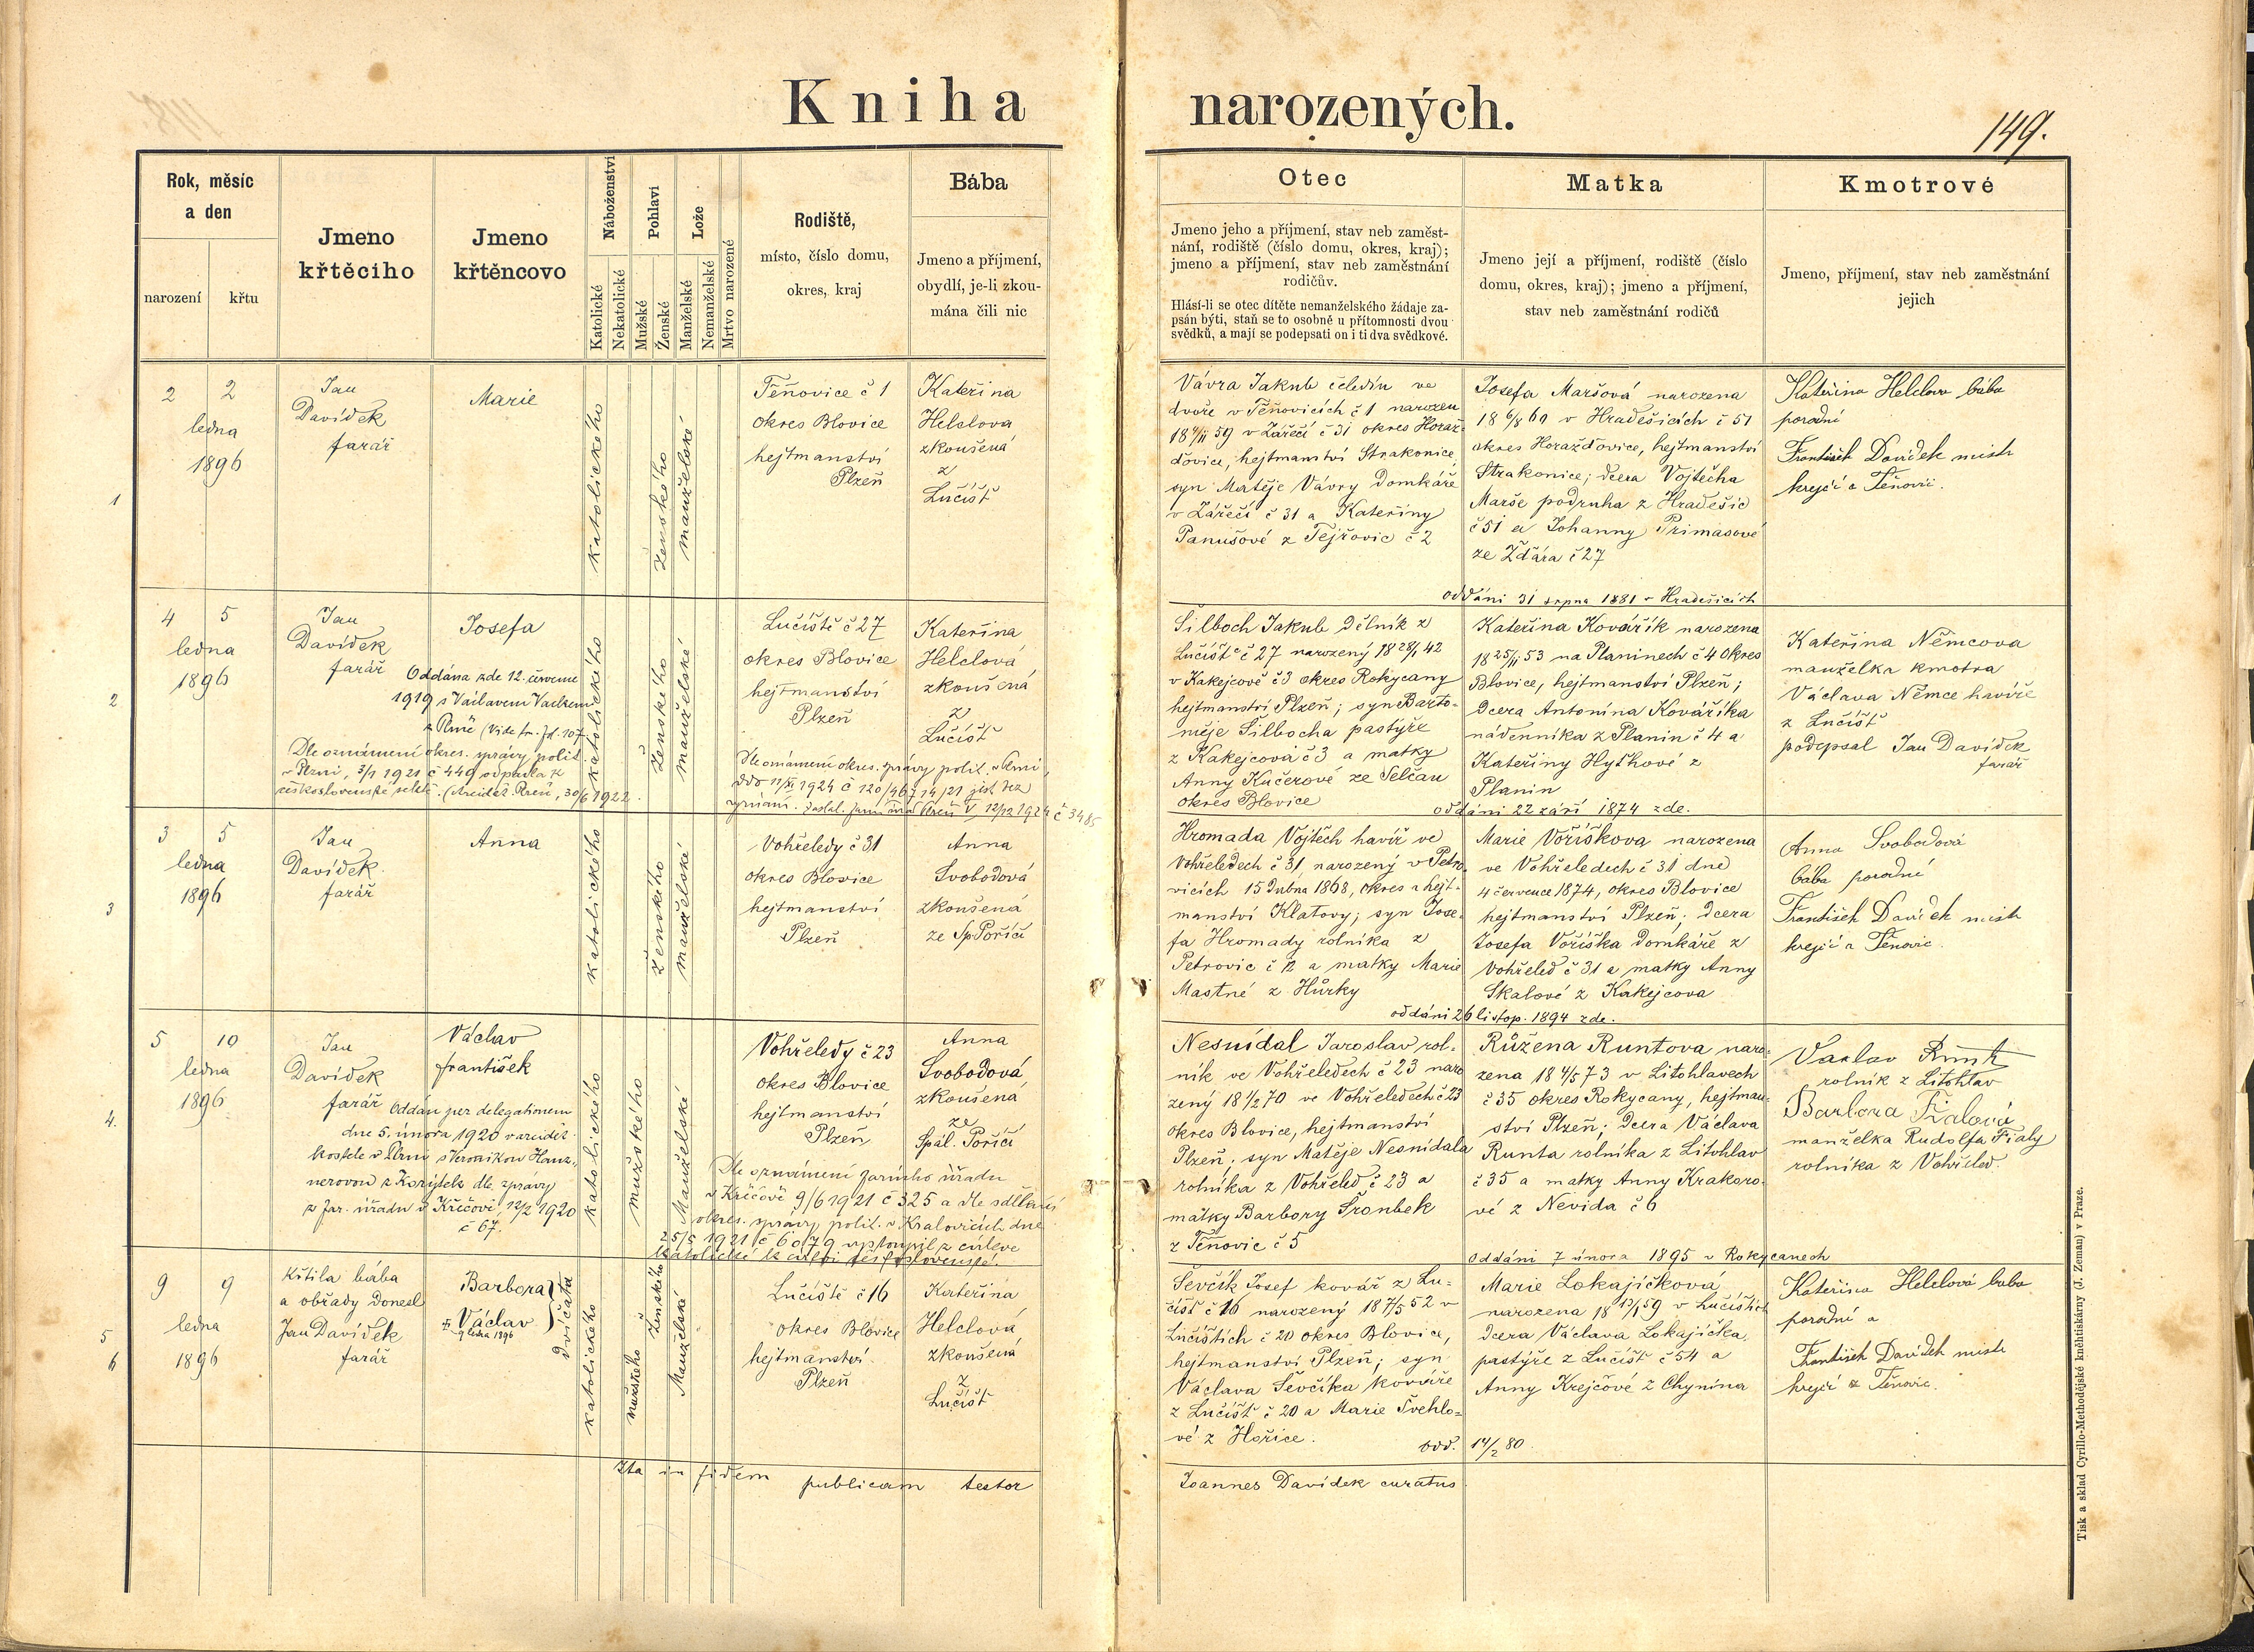 Kniha narozených.
149.
Rok, měsíc
a den
narození
křtu
Jmeno
křtěciho
Jmeno
křtěncovo
Náboženství
Katolické
Nekatolické
Pohlaví
Mužské
Ženské
Lože
Manželské
Nemanželské
Mrtvo narozené
Rodiště,
místo, číslo domu,
okres, kraj
Bába
Jmeno a příjmení,
obydlí, je-li zkou-
mána čili nic
Otec
Jmeno jeho a příjmení, stav neb zaměst-
nání, rodiště (číslo domu, okres, kraj);
jmeno a příjmení, stav neb zaměstnání
rodičův.
Hlásí-li se otec dítěte nemanželského žádaje za-
psán býti, staň se to osobně u přítomnosti dvou
svědků, a mají se podepsati on i ti dva svědkové.
Matka
Jmeno její a příjmení, rodiště (číslo
domu, okres, kraj); jmeno a příjmení,
stav neb zaměstnání rodičů
Kmotrové
Jmeno, příjmení, stav neb zaměstnání
jejich
1
2 2
ledna
1896
Jan
Davídek
farář
Marie
katolického
ženského
manželské
Těňovice č 1
okres Blovice
hejtmanství
Plzeň
Kateřina
Helclová
zkoušená
z
Lučišť
Vávra Jakub čeledín ve
dvoře v Těňovicích č 1 narozen
18 4/11 59 v Zářečí č 31 okres Horaž-
ďovice, hejtmanství Strakonice,
syn Matěje Vávry domkáře
v Zářečí č 31 a Kateřiny
Panušové z Tejřovic č 2
Josefa Maršová narozena
18 6/8 60 v Hradešicích č 51
okres Horažďovice, hejtmanství
Strakonice; dcera Vojtěcha
Marše podruha z Hradešic
č 51 a Johanny Primasové
ze Žďára č 27
oddáni 31 srpna 1881 v Hradešicích
Kateřina Helclova bába
porodní
František Davídek mistr
krejčí z Těňovic.
2
4 5
ledna
1896
Jan
Davídek
farář
Josefa
Oddána zde 12. července
1919 s Václavem Vackem
z Plzně (Vide tm. fol. 107
Dle oznámení okres. správy polit.
v Plzni, 3/1 1921 č 449 odpadla k
československé sektě. (Arciděk. Plzeň, 30/6 1922.
katolického
ženského
manželské
Lučiště č 27
okres Blovice
hejtmanství
Plzeň
Dle oznámení okres. správy polit. v Plzni,
ddo 11/XI 1924 č 120/467 14/21 jest bez
vyznání. 12/12 1924 č 3485
Kateřina
Helclová
zkoušená
z
Lučišť
Šilboch Jakub dělník z
Lučišť č 27 narozený 18 28/1 42
v Kakejcově č 3 okres Rokycany
hejtmanství Plzeň; syn Barto-
měje Šilbocha pastýře
z Kakejcová č 3 a matky
Anny Kučerové ze Selčan
okres Blovice
Kateřina Kovářík narozena
18 25/11 53 na Planinech č 4 okres
Blovice, hejtmanství Plzeň;
dcera Antonína Kováříka
nádenníka z Planin č 4 a
Kateřiny Hyťhové z
Planin
oddáni 22 září 1874 zde.
Kateřina Němcova
manželka kmotra
Václava Němce havíře
z Lučišť
podepsal Jan Davídek
farář
3
3 5
ledna
1896
Jan
Davídek
farář
Anna
katolického
ženského
manželské
Vohřeledy č 31
okres Blovice
hejtmanství
Plzeň
Anna
Svobodová
zkoušená
ze Sp. Poříčí
Hromada Vojtěch havíř ve
Vohřeledech č 31, narozený v Petro-
vicích 15 dubna 1868, okres a hejt-
manství Klatovy; syn Jose-
fa Hromady rolníka z
Petrovic č 12 a matky Marie
Mastné z Hůrky
Marie Voříškova narozena
ve Vohřeledech č 31 dne
4 července 1874, okres Blovice
hejtmanství Plzeň; dcera
Josefa Voříška domkáře z
Vohřeled č 31 a matky Anny
Skalové z Kakejcova
oddáni 26 listop. 1894 zde.
Anna Svobodová
bába porodní
František Davídek mistr
krejčí z Těňovic.
4.
5 10
ledna
1896
Jan
Davídek
farář
Václav
František
Oddán per delegationem
dne 5. února 1920 v arciděk.
kostele v Plzni s Veronikou Hanz-
nerovou z Korýtek dle zprávy
z far. úřadu v Kříčově, 12/2 1920
č 67.
katolického
mužského
Manželské
Vohřeledy č 23
okres Blovice
hejtmanství
Plzeň
Dle oznámení farního úřadu
v Kříčově 9/6 1921 č 325 a dle sdělení
okres. správy polit. v Kralovicích dne
25/5 1921 č 6079 vystoupil z církve
katolické k církvi československé.
Anna
Svobodová
zkoušená
ze
Spál. Poříčí
Nesnídal Jaroslav rol-
ník ve Vohřeledech č 23 naro-
zený 18 1/2 70 ve Vohřeledech č 23
okres Blovice, hejtmanství
Plzeň; syn Matěje Nesnídala
rolníka z Vohřeled č 23 a
matky Barbory Šronbek
z Těňovic č 5
Růžena Runtova naro-
zena 18 4/5 73 v Litohlavech
č 35 okres Rokycany, hejtman-
ství Plzeň; dcera Václava
Runta rolníka z Litohlav
č 35 a matky Anny Krakoro-
vé z Nevida č 6
Oddáni 7 února 1895 v Rokycanech
Vaclav Runt
rolník z Litohlav
Barbora Fialová
manželka Rudolfa Fialy
rolníka z Vohřeled.
5
6
9 9
ledna
1896
Křtila bába
a obřady donesl
Jan Davídek
farář
Barbora
Václav
† 9 ledna 1896
dvojčata
katolického
mužského
ženského
Manželské
Lučiště č 16
okres Blovice
hejtmanství
Plzeň
Kateřina
Helclová
zkoušená
z
Lučišť
Ševčík Josef kovář z Lu-
čišť č 16 narozený 18 7/5 52 v
Lučištích č 20 okres Blovice,
hejtmanství Plzeň; syn
Václava Ševčíka kováře
z Lučišť č 20 a Marie Švehlo-
vé z Hořice.
Marie Lokajíčková
narozena 18 13/1 59 v Lučištích
dcera Václava Lokajíčka,
pastýře z Lučišť č 54 a
Anny Krejčové z Chynína
odd. 14/2 80.
Kateřina Helclová baba
porodní a
František Davídek mistr
krejčí z Těňovic.
Ita in fidem publicam testor
Joannes Davídek curatus.
Tisk a sklad Cyrillo-Methodějské kněhtiskárny (J. Zeman) v Praze.